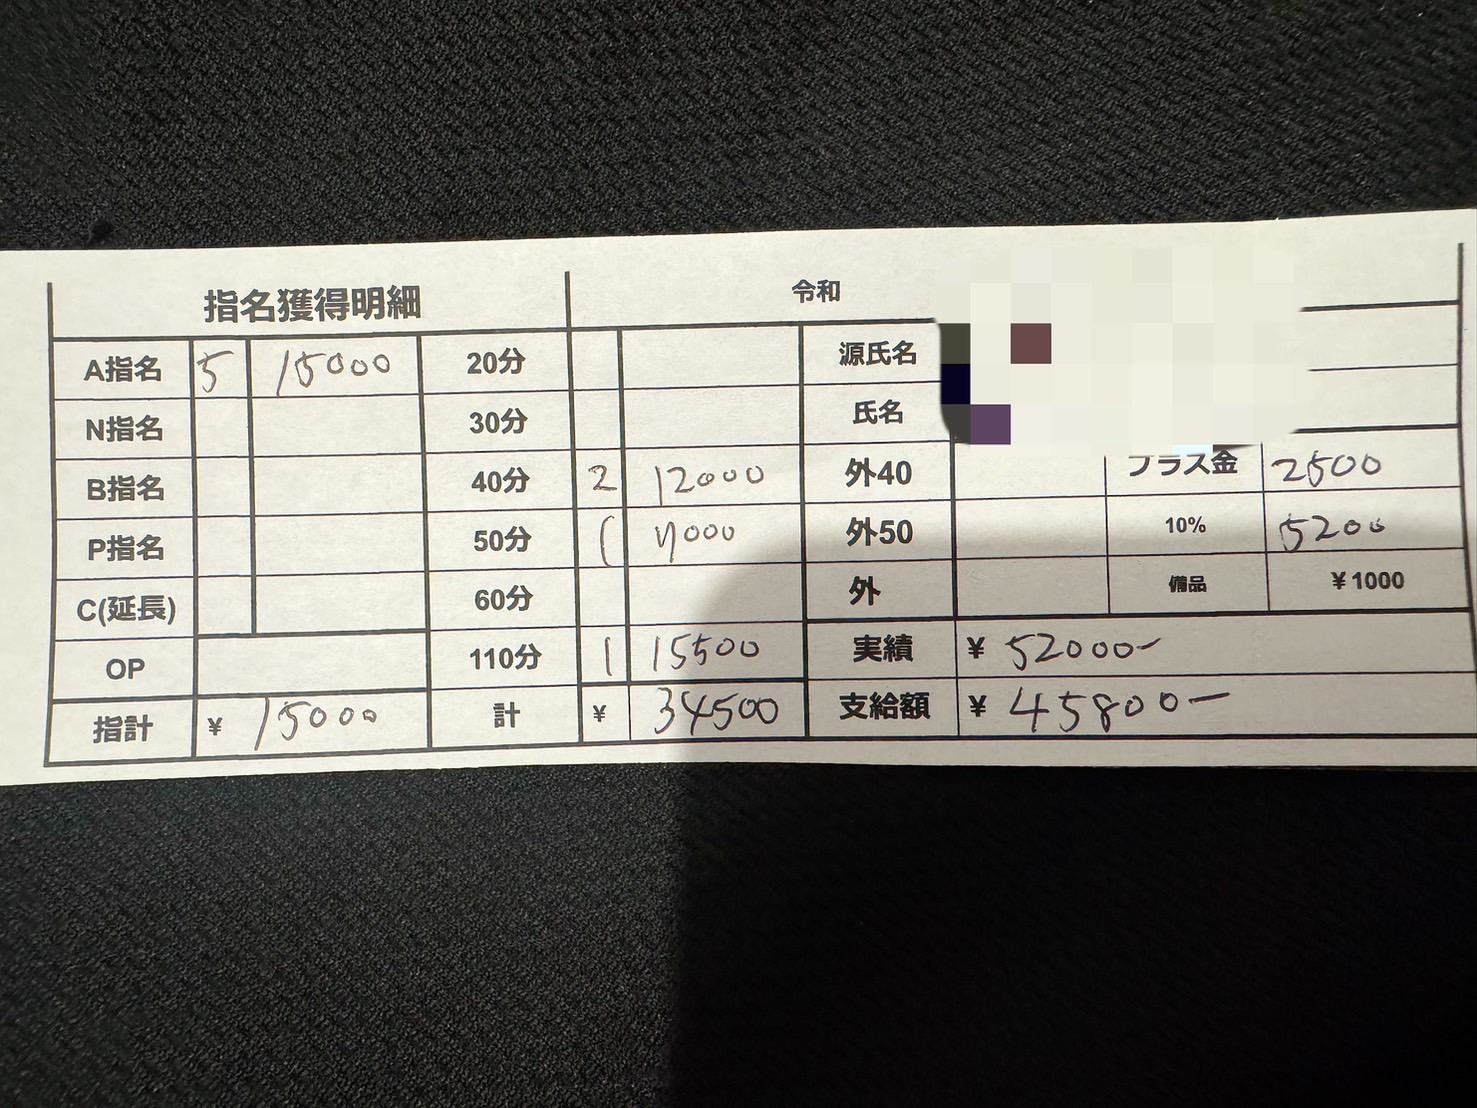 指名獲得明細 令和
A指名 5 15000 20分 源氏名
N指名 30分 氏名
B指名 40分 2 12000 外40 プラス金 2500
P指名 50分 1 7000 外50 10% 5200
C(延長) 60分 外 備品 ¥1000
OP 110分 1 15500 実績 ¥ 52000-
指計 ¥ 15000 計 ¥ 34500 支給額 ¥ 45800-